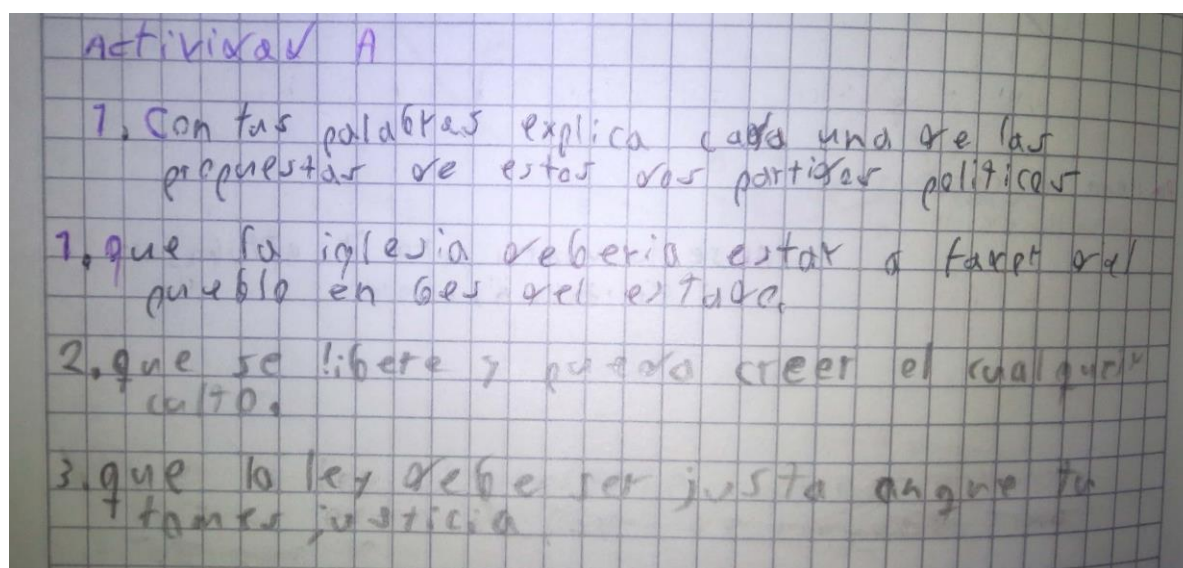 Actividad A
1. Con tus palabras explica cada una de las
propuestas de estos dos partidos politicos
1. que la iglesia deberia estar a favor del
pueblo en bes del estado.
2. que se libere y pueda creer el cualquier
culto.
3. que la ley debe ser justa anque tu
tomes justicia